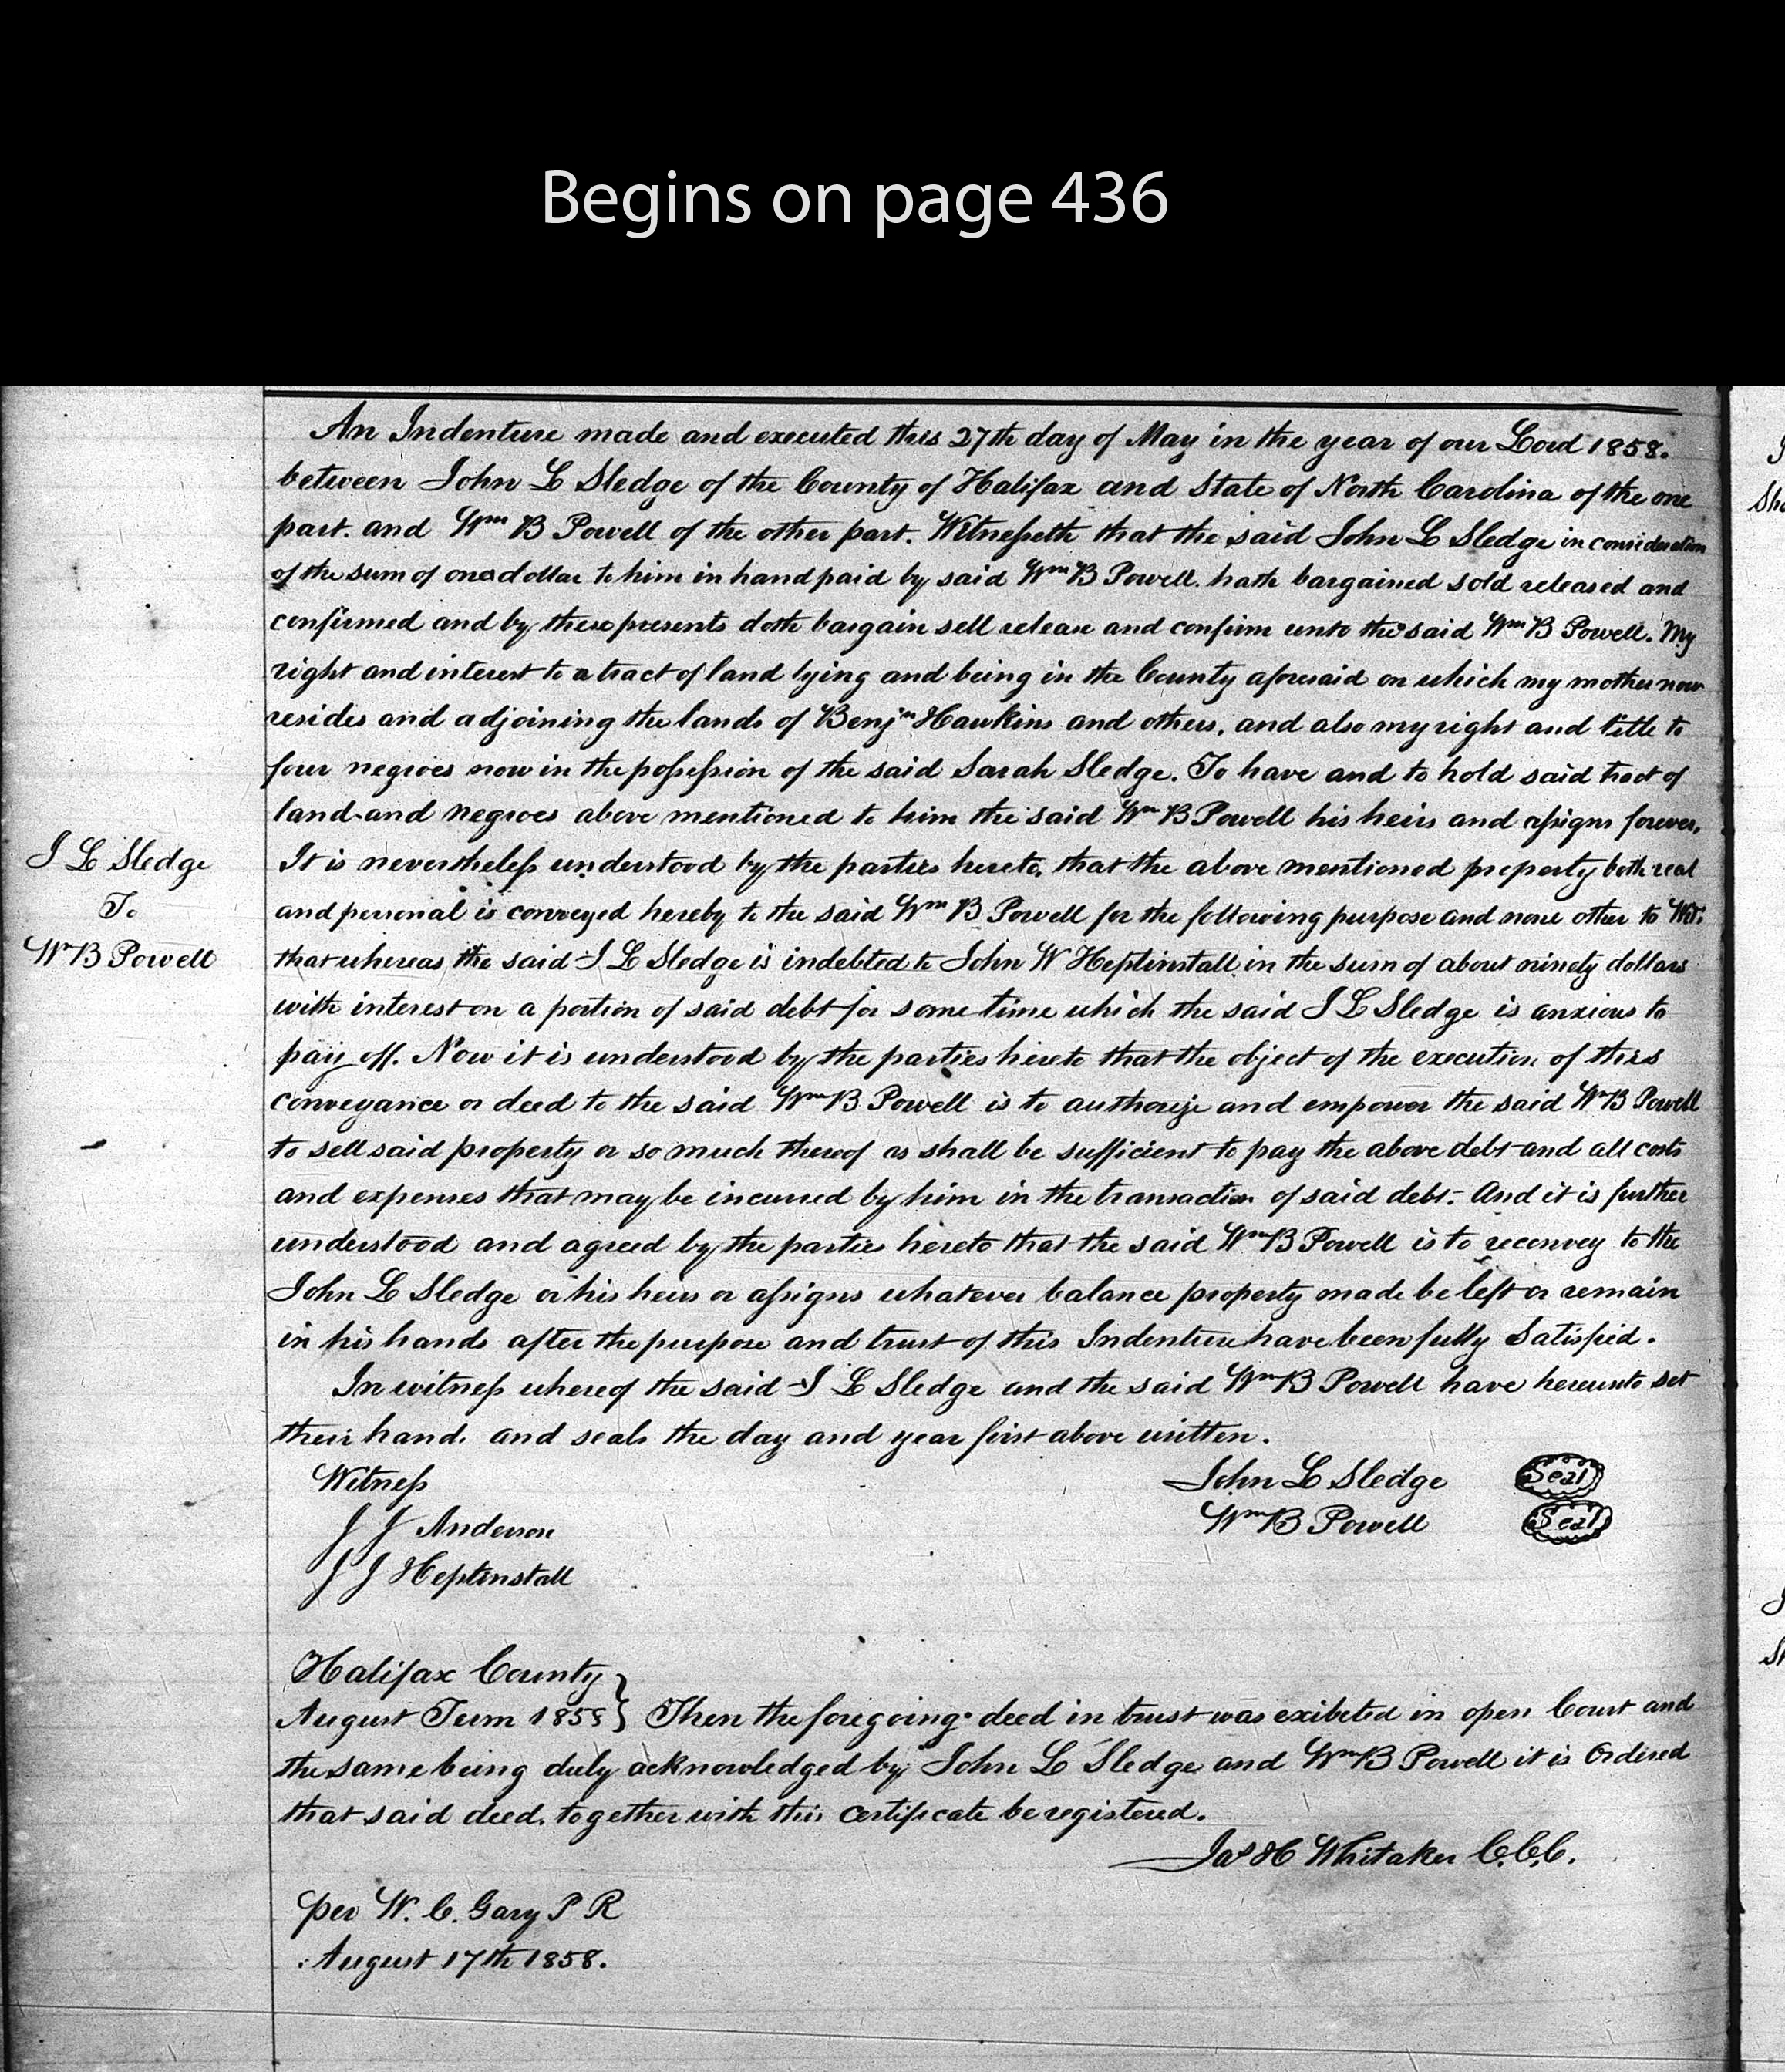 Begins on page 436
An Indenture made and executed this 27th day of May in the year of our Lord 1858.
between John L Sledge of the County of Halifax and State of North Carolina of the one
part. and Wm B Powell of the other part. Witnesseth that the said John L Sledge in consideration
of the sum of one dollar to him in hand paid by said Wm B Powell. hath bargained sold released and
confirmed and by these presents doth bargain sell release and confirm unto the said Wm B Powell. My
right and interest to a tract of land lying and being in the County aforesaid on which my mother now
resides and adjoining the lands of Benjn Hawkins and others, and also my right and title to
four negroes now in the possession of the said Sarah Sledge. To have and to hold said tract of
land and negroes above mentioned to him the said Wm B Powell his heirs and assigns forever.
It is nevertheless understood by the parties hereto, that the above mentioned property both real
and personal is conveyed hereby to the said Wm B Powell for the following purpose and none other to Wit:
J L Sledge
To
Wm B Powell
that whereas the said J L Sledge is indebted to John W Heptinstall in the sum of about ninety dollars
with interest on a portion of said debt for some time which the said J L Sledge is anxious to
pay off. Now it is understood by the parties hereto that the object of the execution of this
conveyance or deed to the said Wm B Powell is to authorize and empower the said Wm B Powell
to sell said property or so much thereof as shall be sufficient to pay the above debt and all costs
and expenses that may be incurred by him in the transaction of said debt. And it is further
understood and agreed by the parties hereto that the said Wm B Powell is to reconvey to the
John L Sledge or his heirs or assigns whatever balance property made be left or remain
in his hands after the purpose and trust of this Indenture have been fully Satisfied.
In witness whereof the said J L Sledge and the said Wm B Powell have hereunto set
their hand. and seals the day and year first above written.
Witness John L Sledge Seal
J J Anderson Wm B Powell Seal
J J Heptinstall
Halifax County
August Term 1858 } Then the foregoing deed in trust was exibeted in open Court and
the same being duly acknowledged by John L Sledge and Wm B Powell it is Ordered
that said deed. together with this certificate be registered.
Jas H Whitaker C.C.C.
per W. C. Gary P R
August 17th 1858.